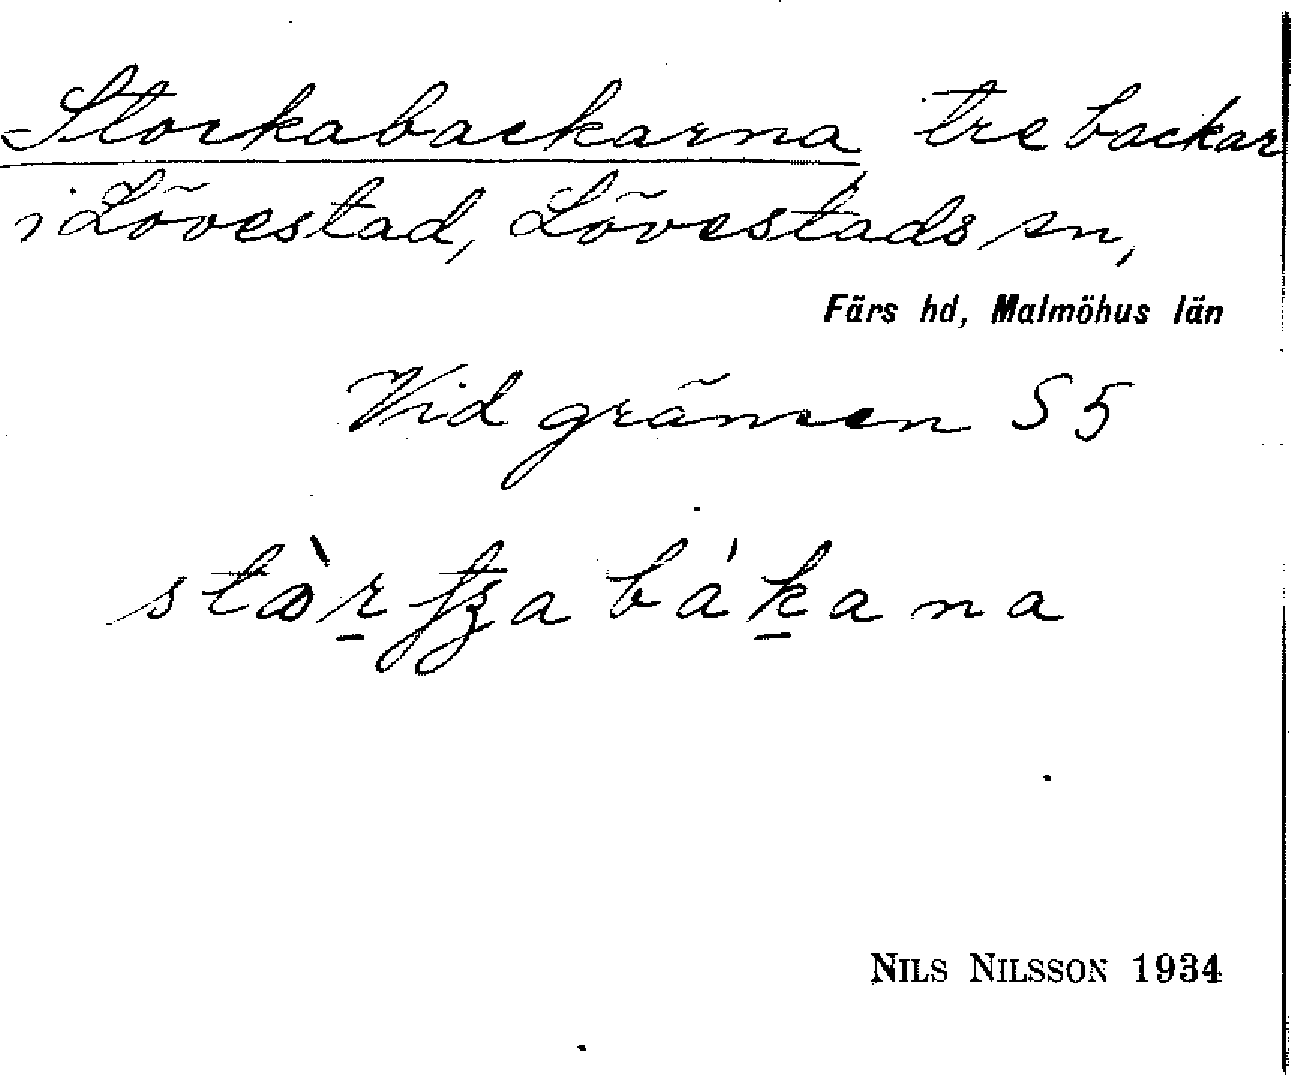 Storkabackarna tre backar
i Lövestad, Lövestads sn,
Färs hd, Malmöhus län
Vid gränsen S 5
NILS NILSSON 1934